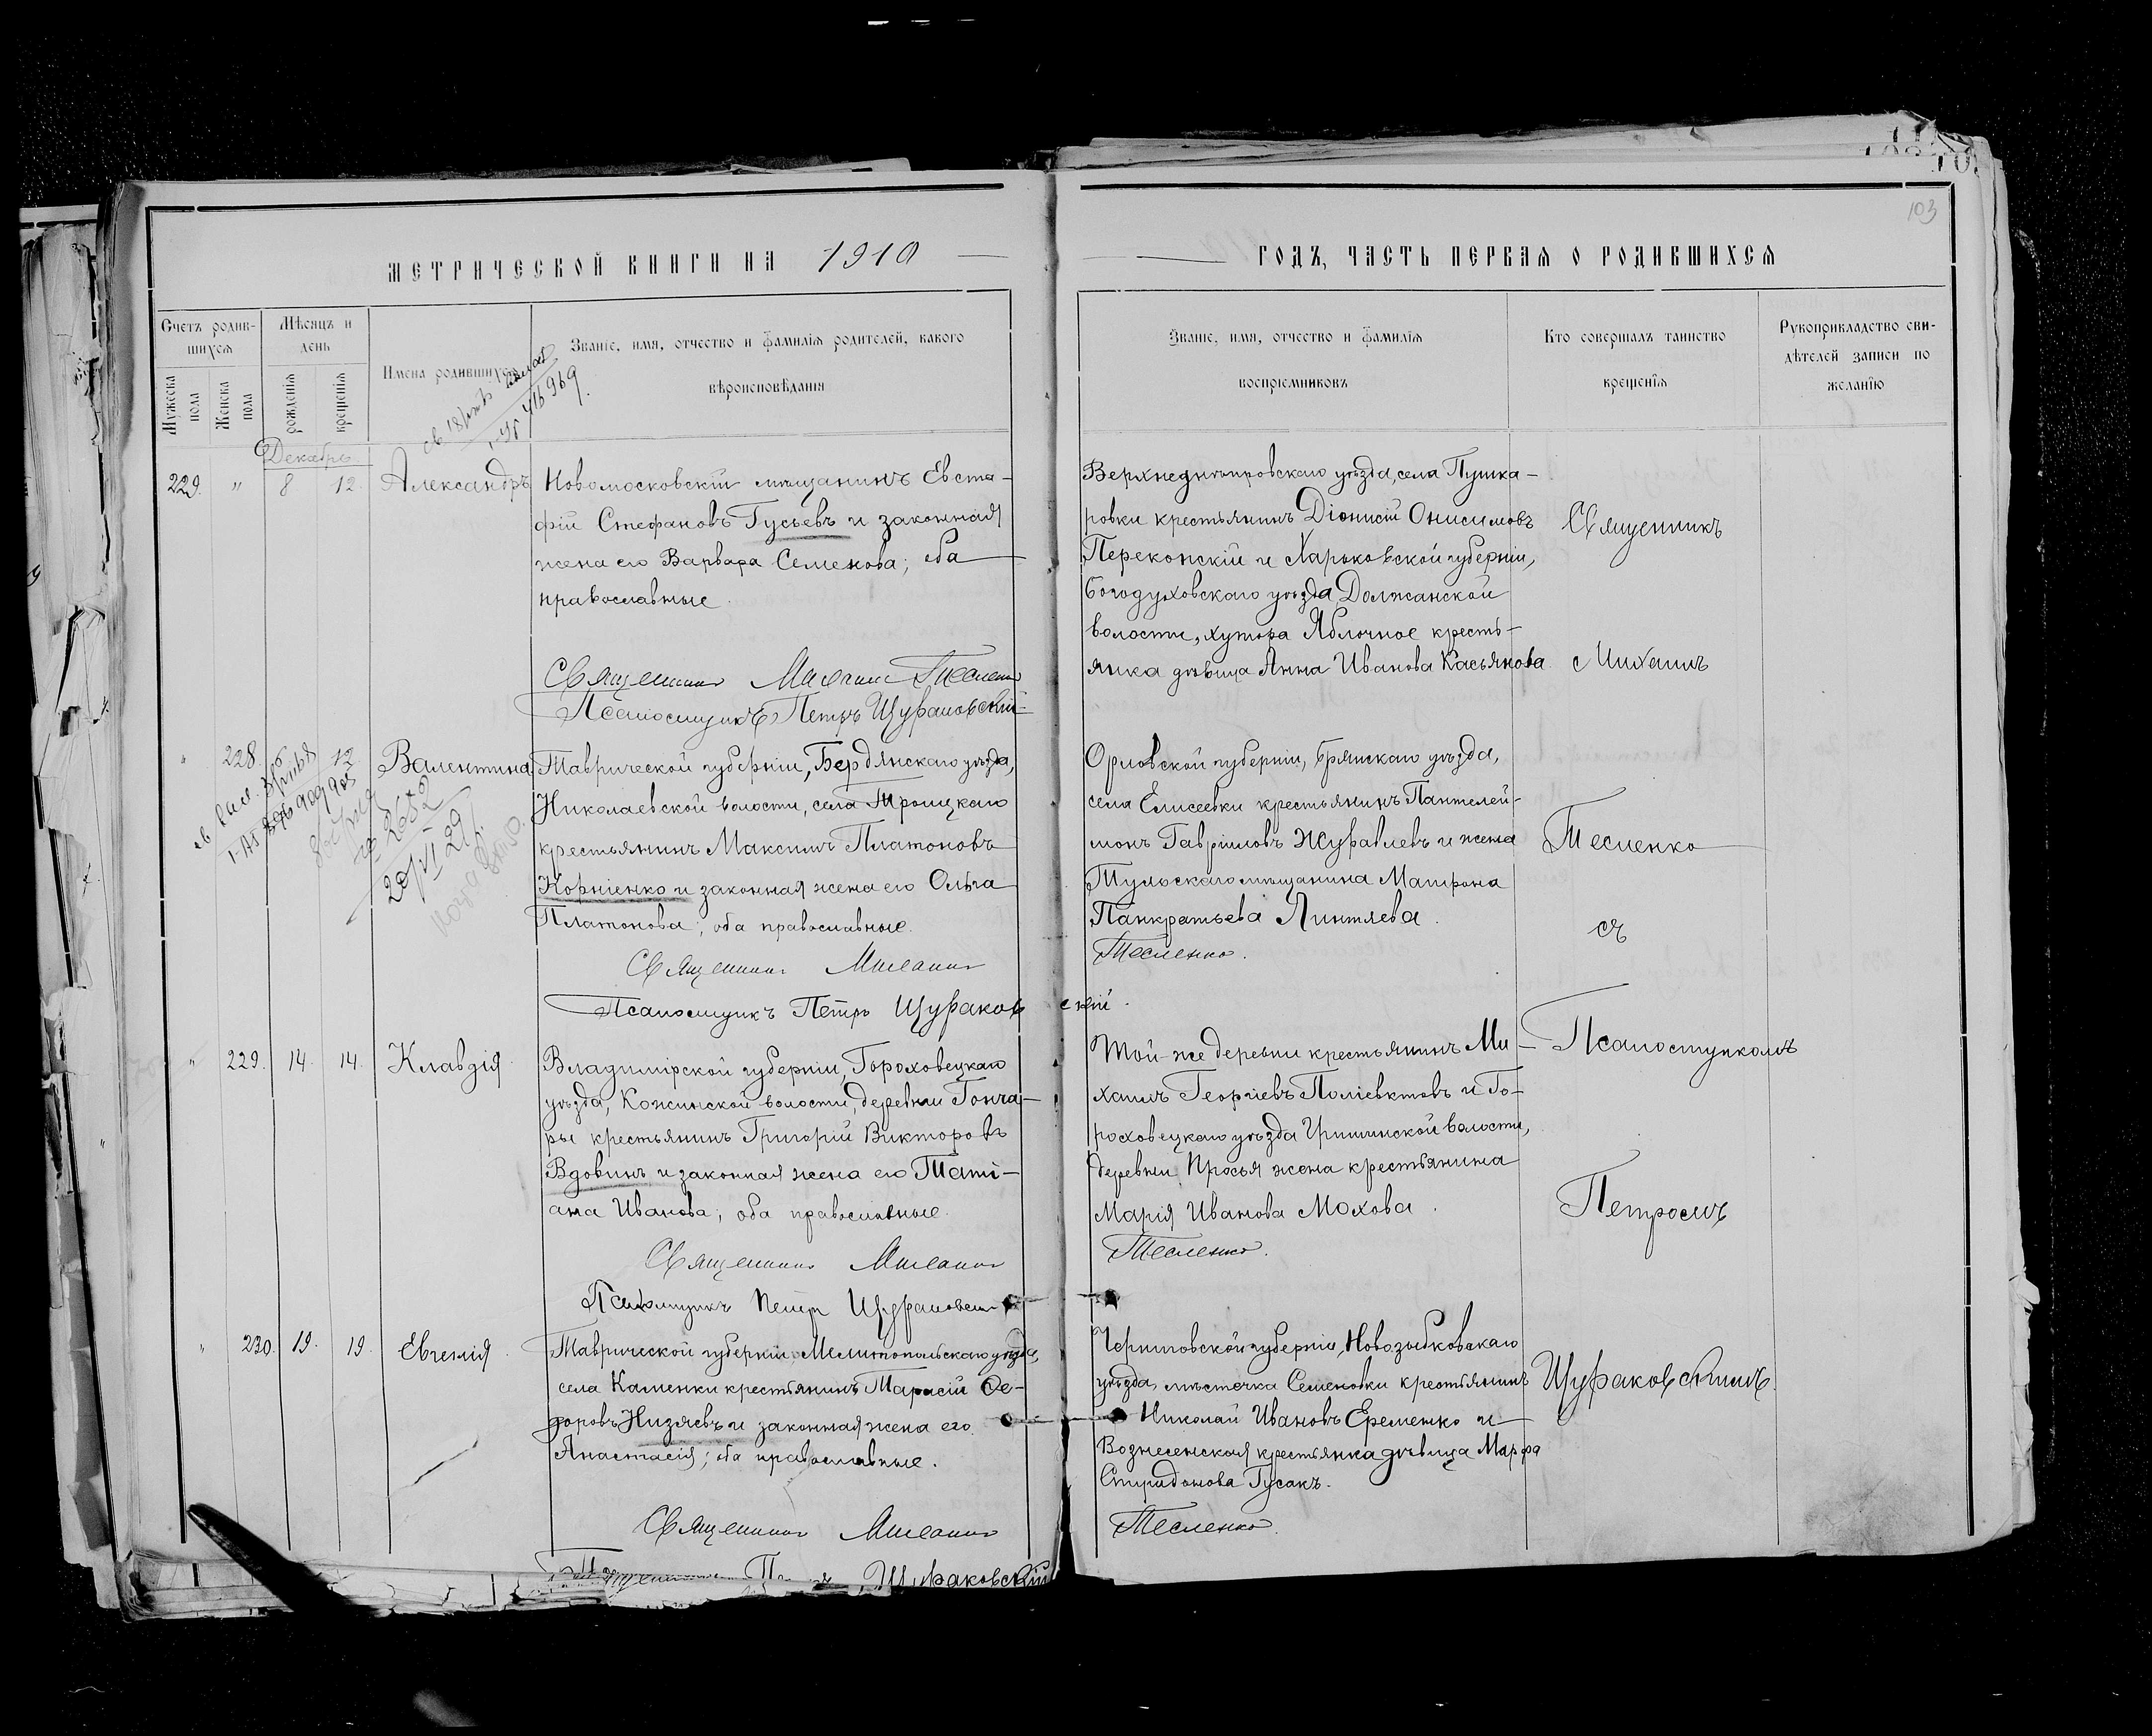 103
МЕТРИЧЕСКОЙ КНИГИ НА 1910
ГОДЪ, ЧАСТЬ ПЕРВАЯ О РОДИВШИХСЯ
Счетъ родив-
шихся
Мужеска
пола
Женска
пола
Мѣсяцъ и
день
рожденія
крещенія
Имена родившихся
Званіе, имя, отчество и фамилія родителей, какого
вѣроисповѣданія
Званіе, имя, отчество и фамилія
воспріемниковъ
Кто совершалъ таинство
крещенія
Рукоприкладство сви-
дѣтелей записи по
желанію
Декабрь
229. " 8 12. Александръ
Новомосковскій мѣщанинъ Евста-
фій Стефановъ Гусьевъ и законная
жена его Варвара Семенова; оба
православные.
Священникъ Михаилъ Тесленко
Псаломщикъ Петръ Щураковскій
Верхнеднѣпровскаго уѣзда, села Пушка-
ровки крестьянинъ Діонисій Онисимовъ
Переконскій и Харьковской губерніи,
Богодуховскаго уѣзда Должанской
волости, хутора Яблочное кресть-
янка дѣвица Анна Иванова Касьянова.
Священникъ
Михаилъ
" 228. 12 Валентина
Таврической губерніи, Бердянскаго уѣзда,
Николаевской волости, села Троицкаго
крестьянинъ Максимъ Платоновъ
Корніенко и законная жена его Ольга
Платонова; оба православные.
Священникъ Михаилъ
Псаломщикъ Петръ Щураковскій.
Орловской губерніи, Брянскаго уѣзда,
села Елисеевки крестьянинъ Пантелей-
монъ Гавріиловъ Журавлевъ и жена
Тульскаго мѣщанина Матрона
Панкратьева Линтяева.
Тесленко.
Тесленко
съ
" 229. 14. 14. Клавдія
Владимірской губерніи, Гороховецкаго
уѣзда, Кожинской волости, деревни Гонча-
ры крестьянинъ Григорій Викторовъ
Вдовинъ и законная жена его Таті-
ана Иванова; оба православные.
Священникъ Михаилъ
Псаломщикъ Петръ Щураковскій
Той-же деревни крестьянинъ Ми-
хаилъ Георгіевъ Поліевктовъ и Го-
роховецкаго уѣзда Гришинской волости,
деревни Просья жена крестьянина
Марія Иванова Мохова.
Тесленко.
Псаломщикомъ
Петромъ
" 230. 19. 19. Евгенія.
Таврической губерніи, Мелитопольскаго уѣзда,
села Каменки крестьянинъ Тарасій Ѳе-
доровъ Низяевъ и законная жена его
Анастасія; оба православные.
Священникъ Михаилъ
Псаломщикъ Петръ Щураковскій
Черниговской губерніи, Новозыбковскаго
уѣзда, мѣстечка Семеновки крестьянинъ
Николай Ивановъ Еременко и
Вознесенская крестьянка дѣвица Марфа
Спиридонова Гусакъ.
Тесленко.
Щураковскимъ.